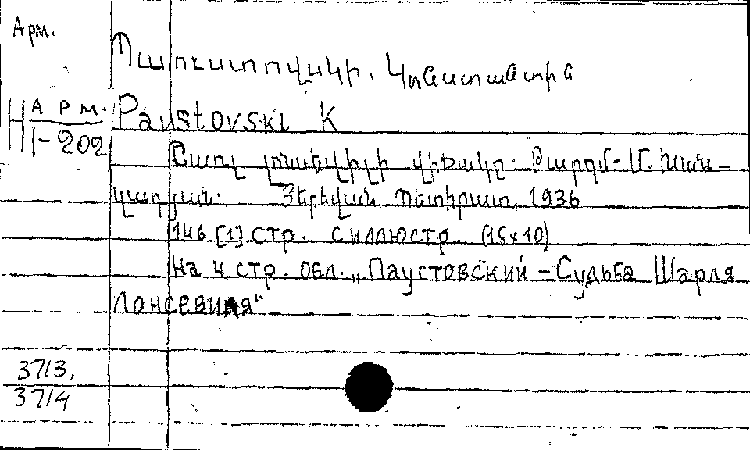 Арм.
Պաուստովսկի, Կոնստանտին
АРМ.
Paustovski K
II-202
Շառլ լոնսեվիլի վիճակը. Թարգմ. Մ. Խան-
դադյան. Յերեվան Պետհրատ, 1936
146 [1] стр. с иллюстр. (15x10)
На 4 стр. обл. „Паустовский - Судьба Шарля
Лонсевиля"
3713,
3714